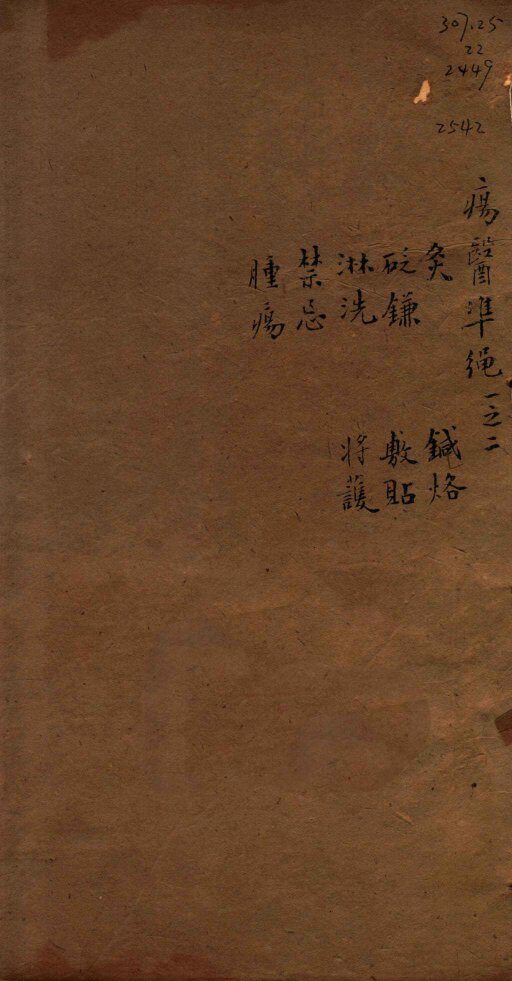 307.25
22
2449
2542
瘍醫準繩 一之二
灸 鍼烙
砭鎌 敷貼
淋洗 將護
禁忌
腫瘍